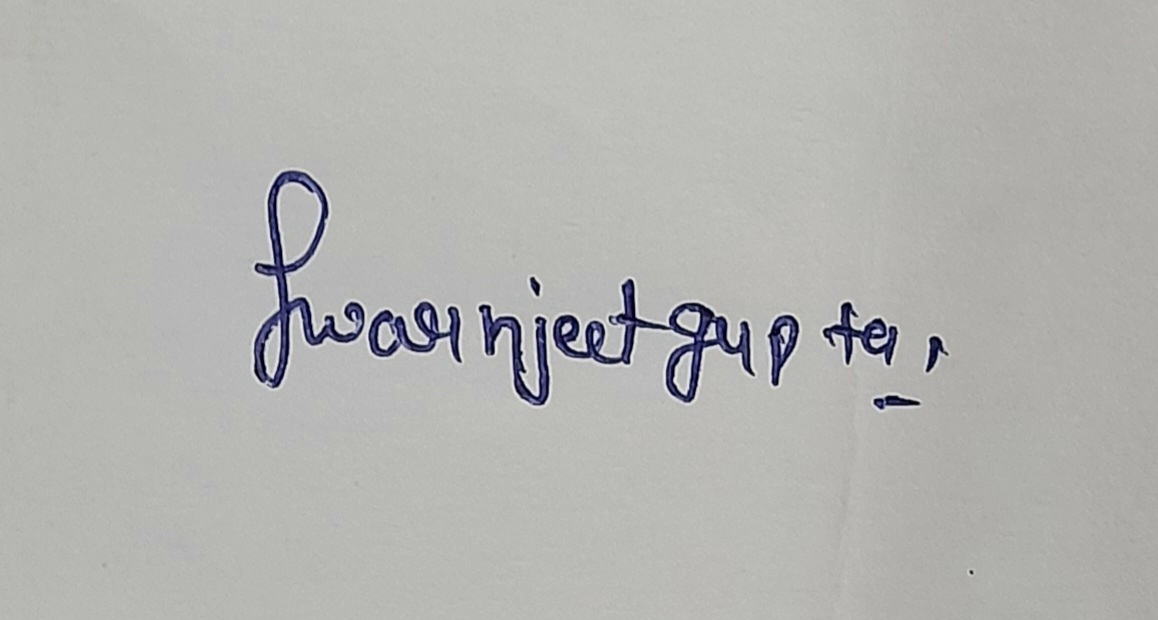 Swarnjeet gupta,